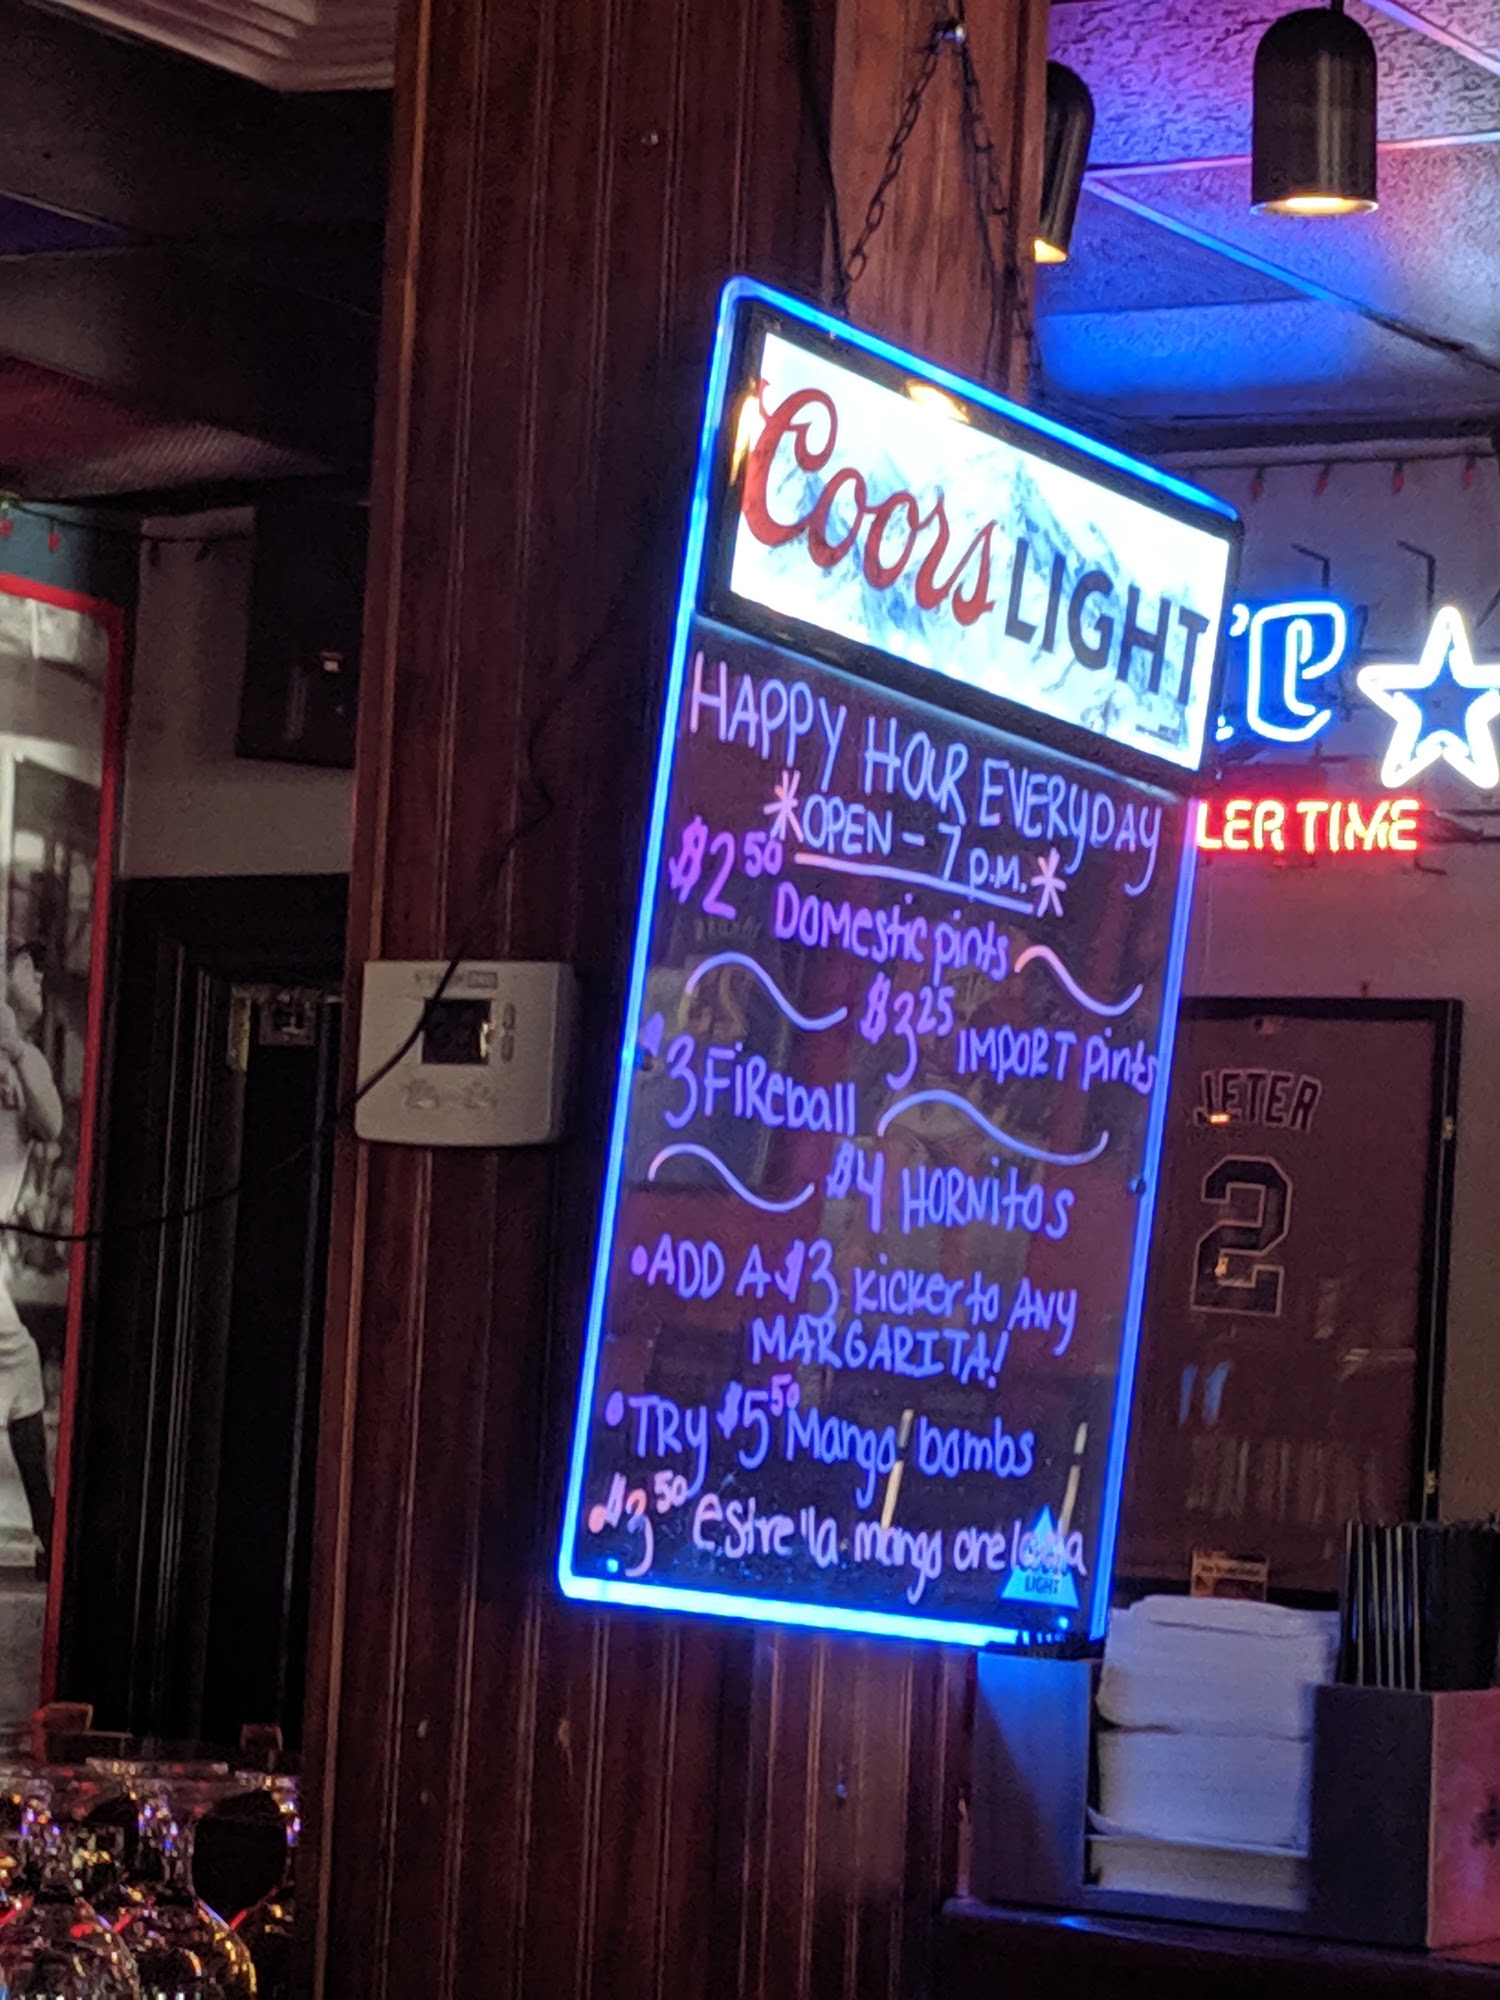 Coors LIGHT
HAPPY HOUR EVERYDAY
*OPEN - 7 p.m.*
$2.50 Domestic pints
$3.25 IMPORT pints
$3 Fireball
$4 HORNitos
•ADD A $3 kicker to ANY
MARGARITA!
•TRY $5.50 Mango bombs
$3.50 estrella mango
LIGHT
LER TIME
JETER
2